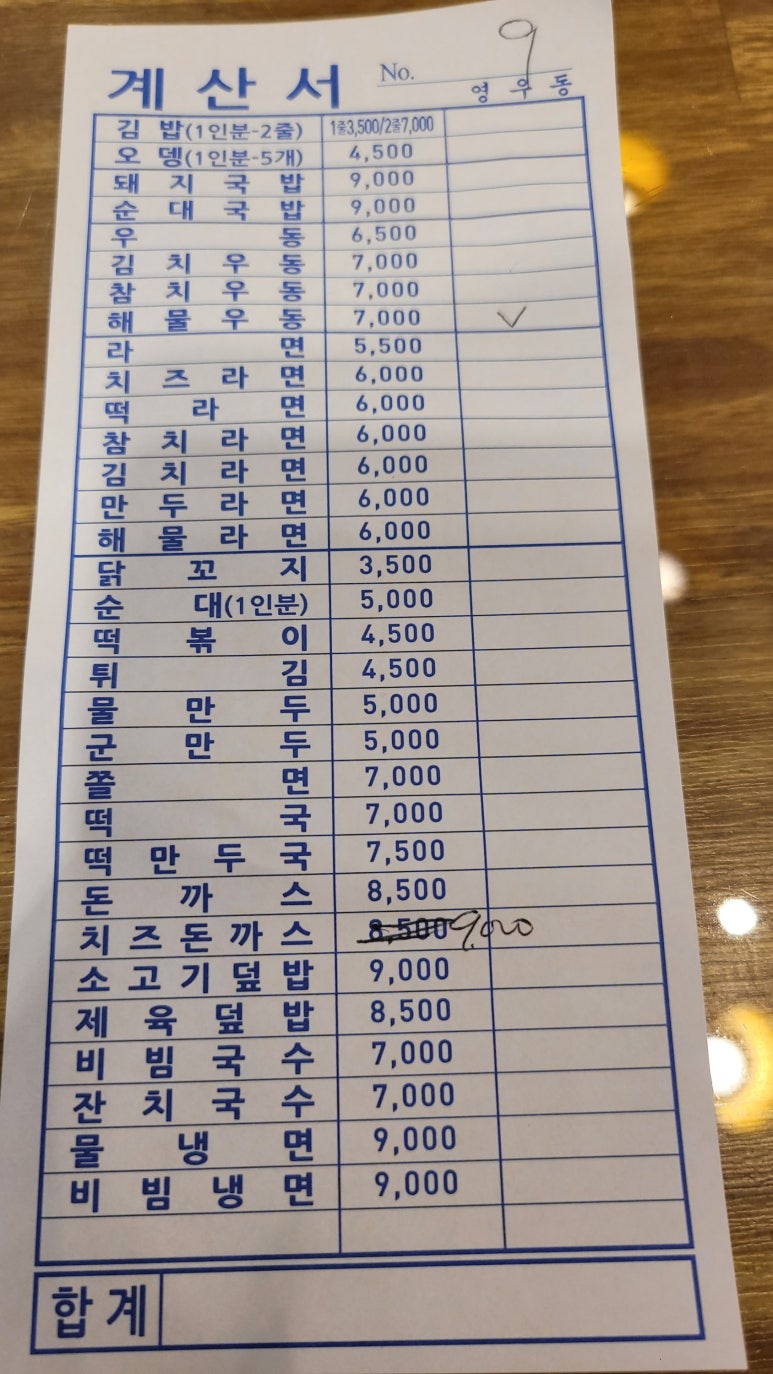 계산서 No. 9
영우동
김밥(1인분-2줄) 1줄3,500/2줄7,000
오뎅(1인분-5개) 4,500
돼지국밥 9,000
순대국밥 9,000
우동 6,500
김치우동 7,000
참치우동 7,000
해물우동 7,000 ✓
라면 5,500
치즈라면 6,000
떡라면 6,000
참치라면 6,000
김치라면 6,000
만두라면 6,000
해물라면 6,000
닭꼬지 3,500
순대(1인분) 5,000
떡볶이 4,500
튀김 4,500
물만두 5,000
군만두 5,000
쫄면 7,000
떡국 7,000
떡만두국 7,500
돈까스 8,500
치즈돈까스 8,500 9,000
소고기덮밥 9,000
제육덮밥 8,500
비빔국수 7,000
잔치국수 7,000
물냉면 9,000
비빔냉면 9,000
합계